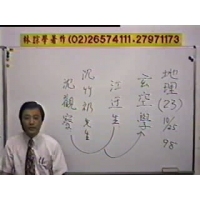 林諒學著作(02)26574111.27971173
地理(23) 10/25 98
玄空學
江近生
沈竹礽先生
沈觀察